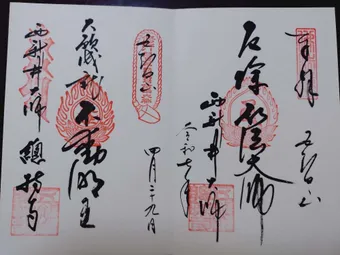 奉拝 五智山
厄除 弘法大師
西新井大師
令和七年
五智山
四月二十九日
大願成就 不動明王
西新井大師 總持寺